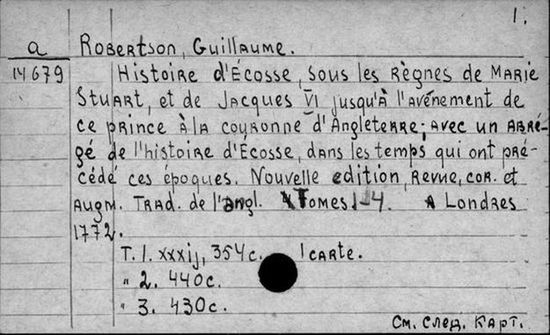 1.
a Robertson, Guillaume.
14679 Histoire d'Écosse, sous les règnes de Marie
Stuart, et de Jacques VI jusqu'à l'avénement de
ce prince à la couronne d'Angleterre; avec un abré-
gé de l'histoire d'Écosse, dans les temps qui ont pré-
cédé ces époques. Nouvelle edition, revue, cor. et
augm. Trad. de l'angl. Tomes 1-4. A Londres
1772.
T. 1. xxxij, 354 c. 1 carte.
" 2. 440 c.
" 3. 430 c.
См. след. карт.